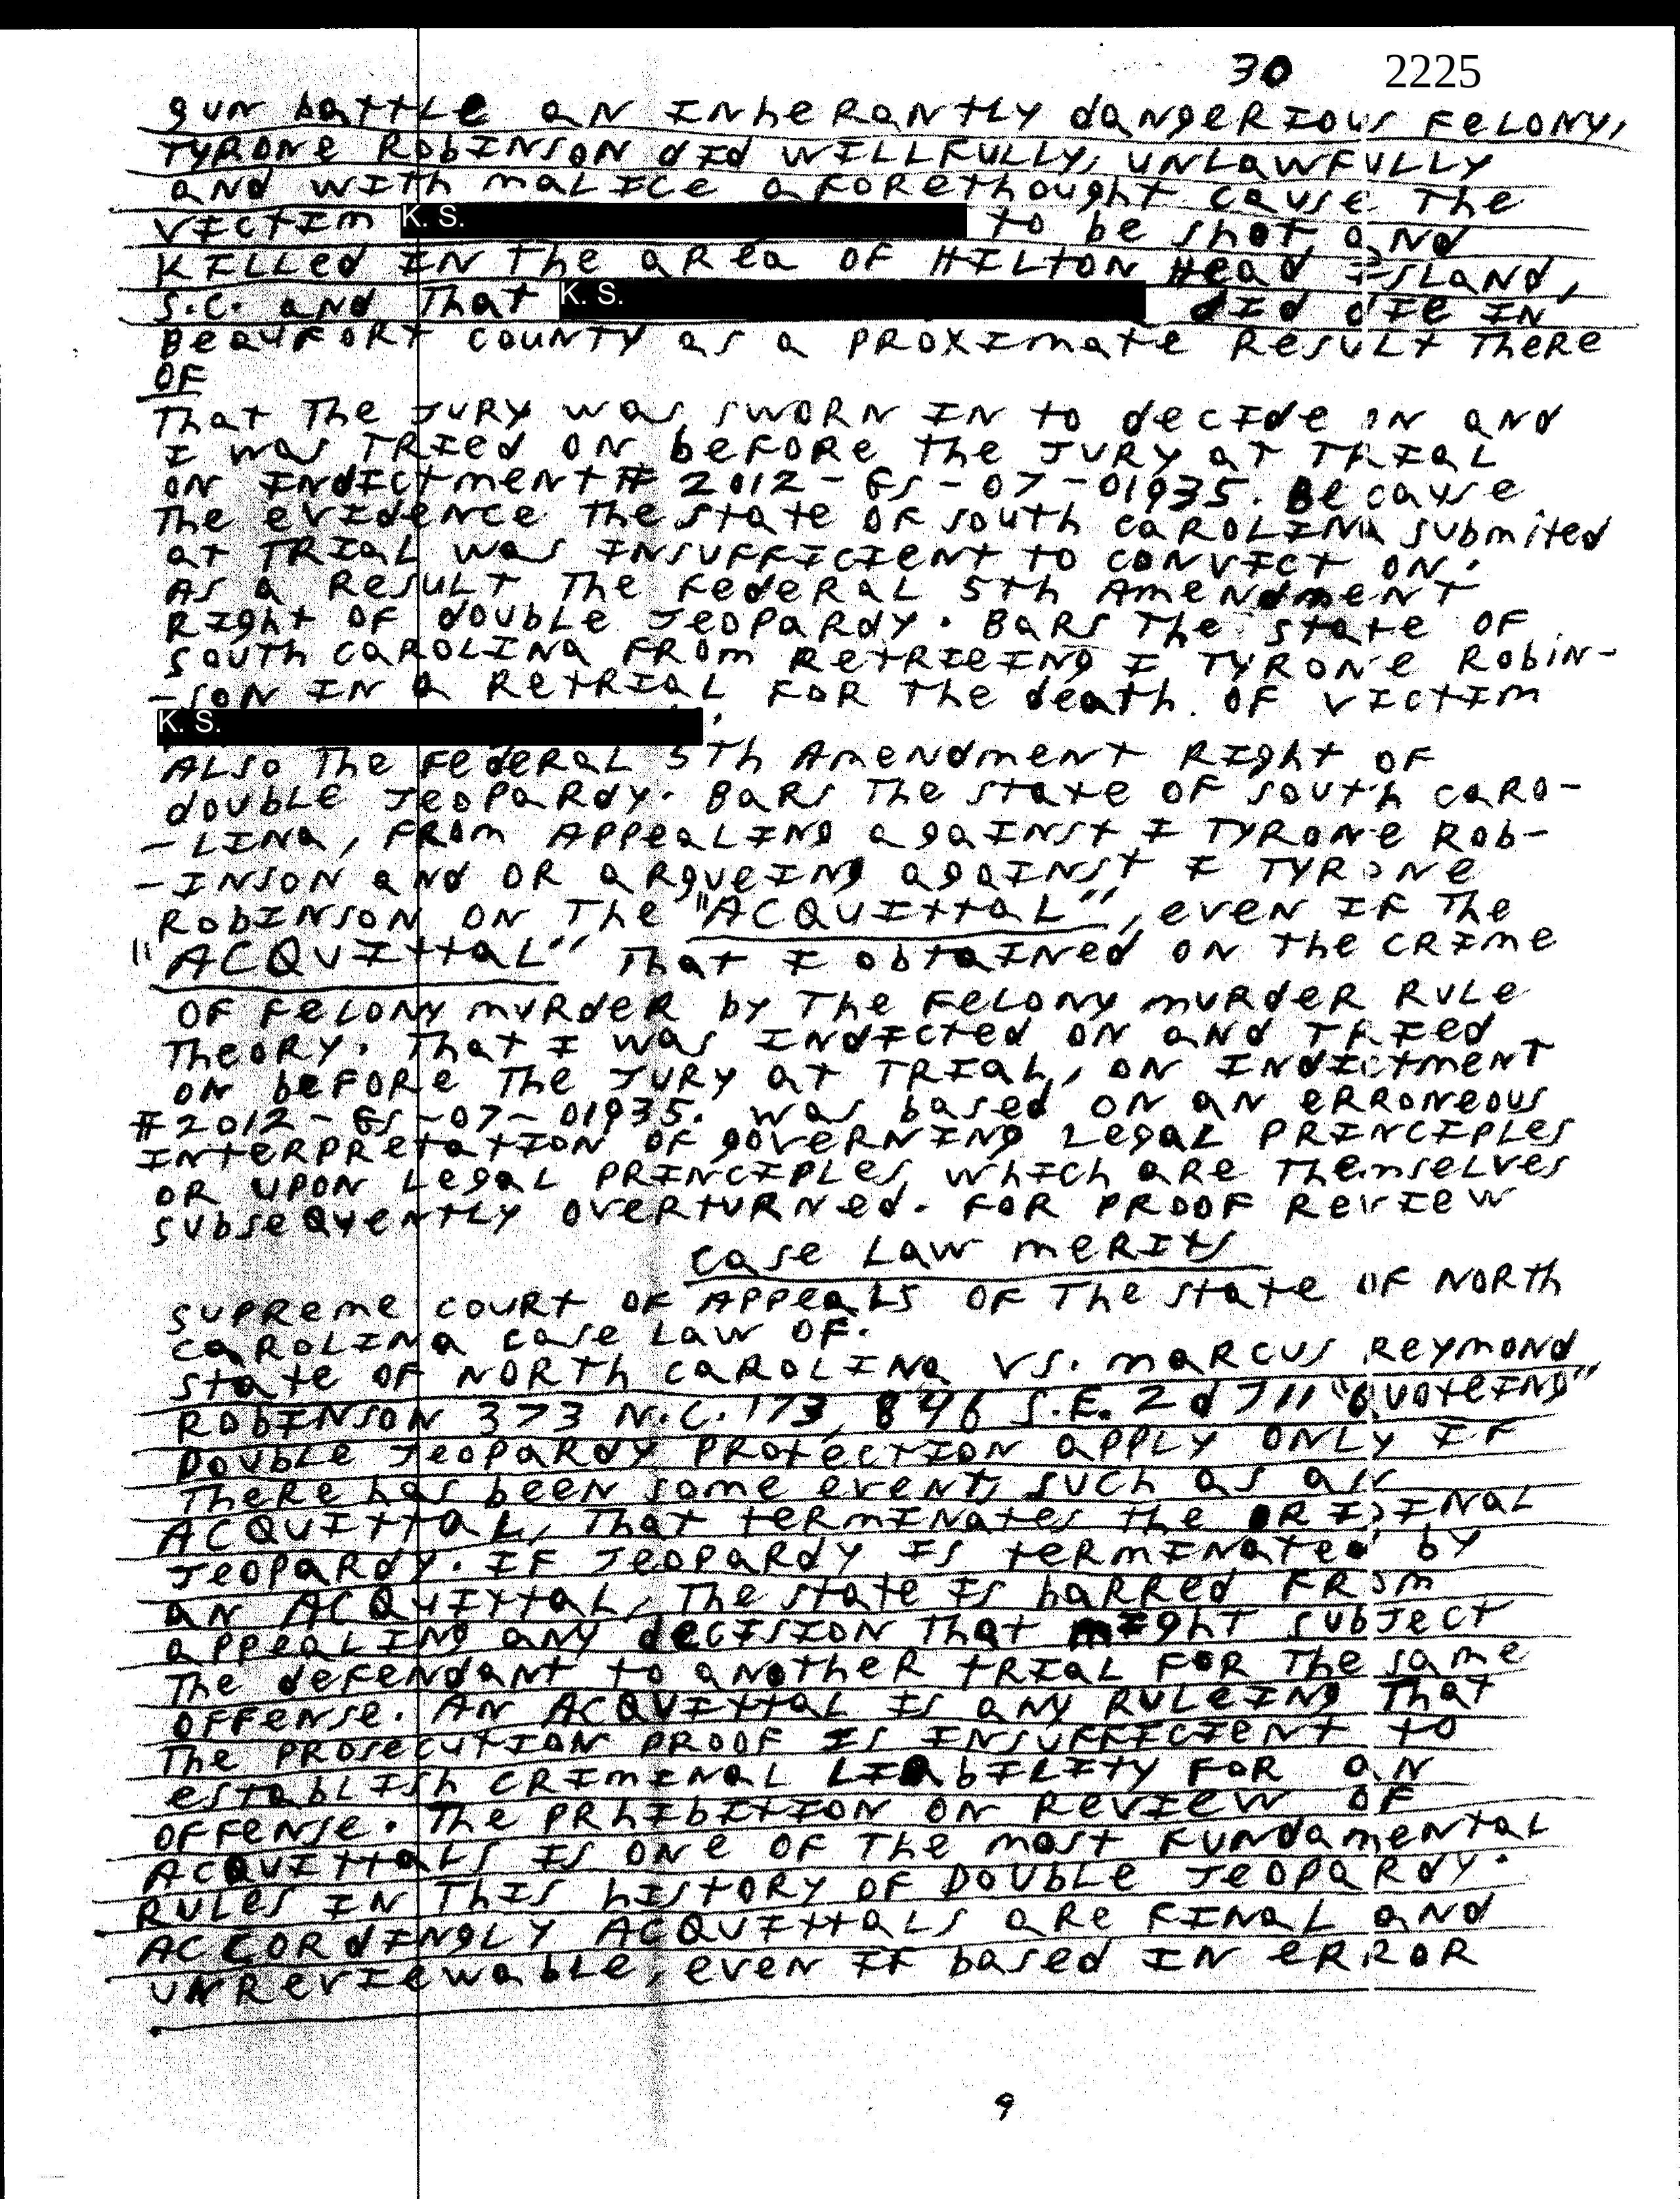 30 2225
gun battle an inherantly dangerious felony,
Tyrone Robinson did willfully, unlawfully
and with malice aforethought cause the
victim K. S. to be shot and
killed in the area of Hilton Head Island,
S.C. and that K. S. did die in
Beaufort County as a proximate result there
of
That the jury was sworn in to decide on and
I was tried on before the jury at trial
on indictment # 2012-GS-07-01935. Because
the evidence the state of South Carolina submited
at trial was insufficient to convict on.
As a result the federal 5th Amendment
right of double jeopardy. Bars the state of
South Carolina from retrieing I Tyrone Robin-
-son in a retrial for the death of victim
K. S.,
Also the federal 5th Amendment right of
double jeopardy. Bars the state of South Caro-
-lina, from appealing against I Tyrone Rob-
-inson and or argueing against I Tyrone
Robinson on the "ACQUITTAL", even if the
"ACQUITTAL" that I obtained on the crime
of felony murder by the felony murder rule
theory. That I was indicted on and tried
on before the jury at trial, on indictment
#2012-GS-07-01935. Was based on an erroneous
interpretation of governing legal principles
or upon legal principles which are themselves
subsequently overturned. For proof review
case law merits
Supreme Court of Appeals of the State of North
Carolina case law of.
State of North Carolina vs. Marcus Reymond
Robinson 373 N.C. 173, 846 S.E. 2d 711 "Quoteing"
Double jeopardy protection apply only if
there has been some event, such as an
acquittal, that terminates the original
jeopardy. If jeopardy is terminated by
an acquittal, the state is barred from
appealing any decision that might subject
the defendant to another trial for the same
offense. An acquittal is any ruleing that
the prosecution proof is insufficient to
establish criminal liability for an
offense. The prhibition on review of
acquittals is one of the most fundamental
rules in this history of double jeopardy.
Accordingly acquittals are final and
unreviewable, even if based in error
.
9